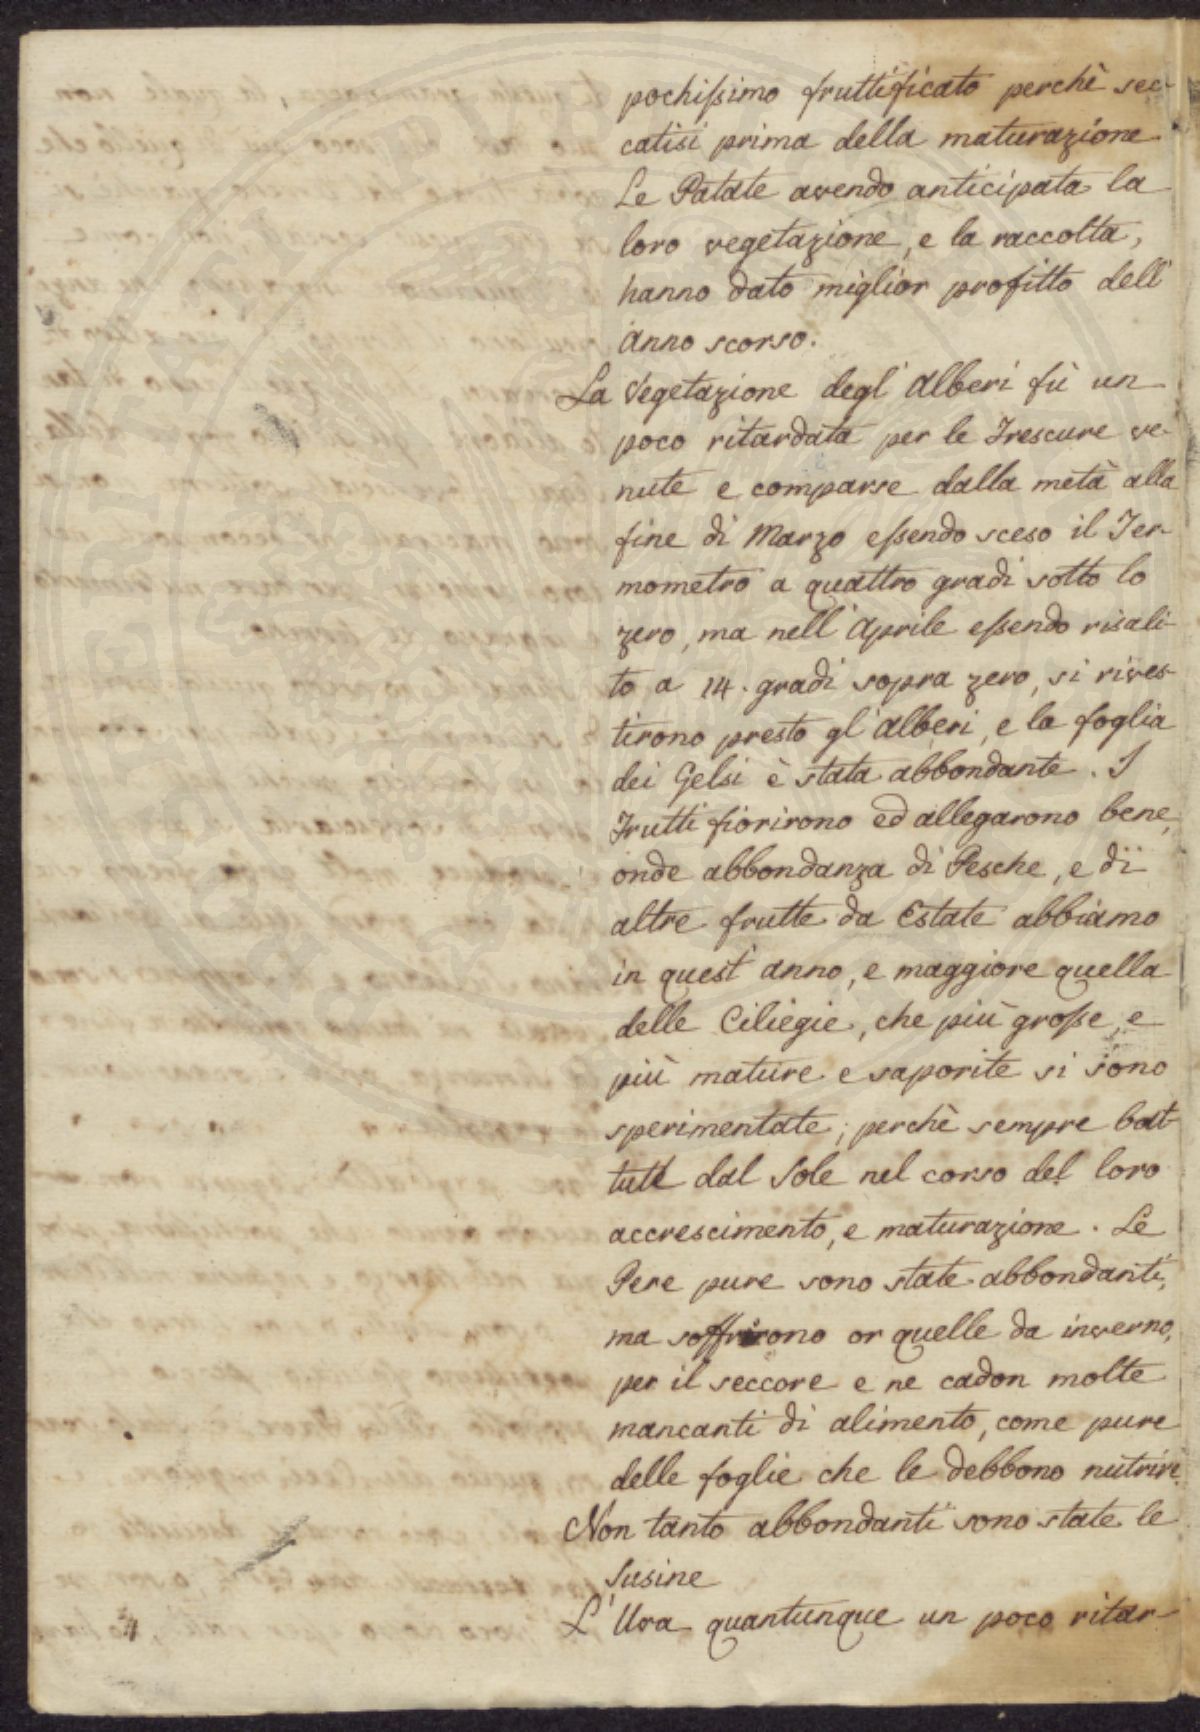 pochissimo fruttificato perchè sec-
catisi prima della maturazione
Le Patate avendo anticipata la
loro vegetazione, e la raccolta,
hanno dato miglior profitto dell'
anno scorso.
La Vegetazione degl'alberi fù un
poco ritardata per le Frescure ve-
nute e comparse dalla metà alla
fine di Marzo essendo sceso il Ter-
mometro a quattro gradi sotto lo
zero, ma nell'Aprile essendo risali-
to a 14. gradi sopra zero, si rives-
tirono presto gl'alberi, e la foglia
dei Gelsi è stata abbondante. I
Frutti fiorirono ed allegarono bene,
onde abbondanza di Pesche, e di
altre frutte da Estate abbiamo
in quest'anno, e maggiore quella
delle Ciliegie, che più grosse, e
più mature e saporite si sono
sperimentate; perchè sempre bat-
tute dal Sole nel corso del loro
accrescimento, e maturazione. Le
Pere pure sono state abbondanti,
ma soffrirono or quelle da inverno,
per il seccore e ne cadon molte
mancanti di alimento, come pure
delle foglie che le debbono nutrire.
Non tanto abbondanti sono state le
Susine
L'Uva quantunque un poco ritar-